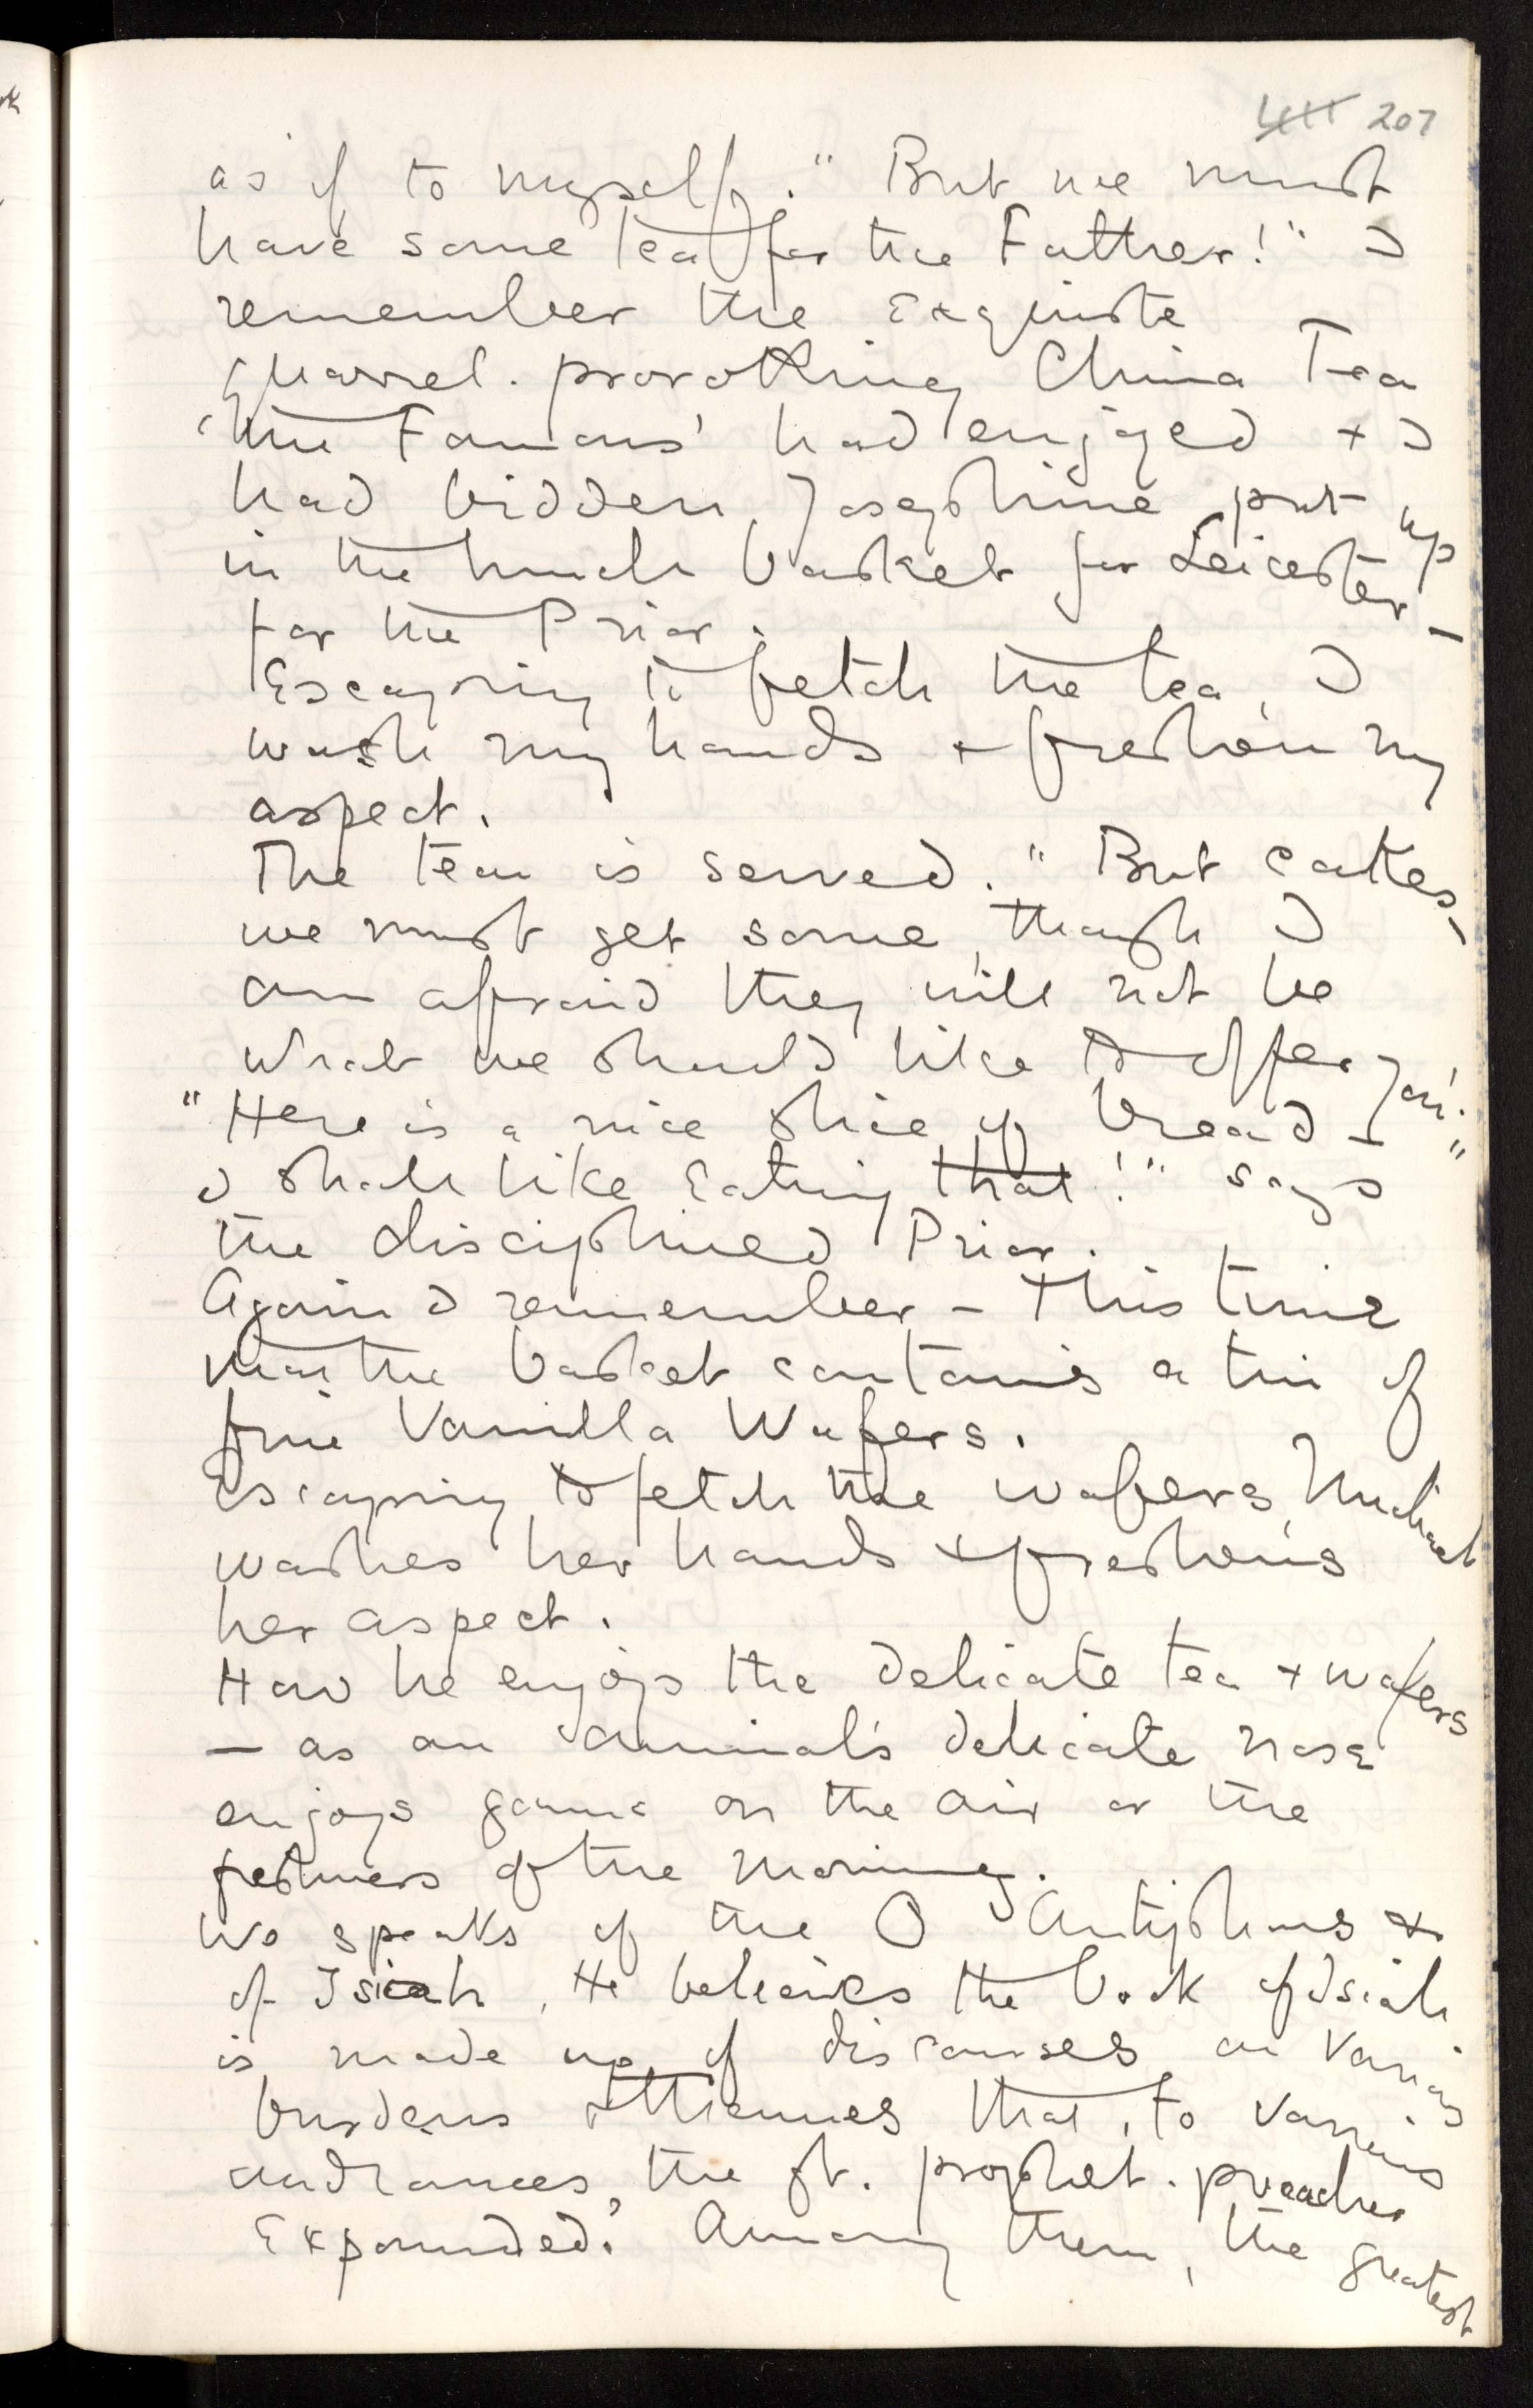 207
as if to myself. "But we must
have some tea for the Father!" I
remember the exquisite
quarrel-provoking China Tea
'the Famous' had enjoyed & I
had bidden Josephine put up
in the lunch basket for Leicester –
for the Prior.
Escaping to fetch the tea, I
wash my hands & freshen my
aspect.
The tea is served. "But cakes –
we must get some, though I
am afraid they will not be
what we should like to offer you."
"Here is a nice slice of bread –
I shall like eating that!" says
the disciplined Prior.
Again I remember – this time
that the basket contains a tin of
fine Vanilla Wafers.
Escaping to fetch the wafers, Michael
washes her hands & freshens
her aspect.
How he enjoys the delicate tea & wafers
– as an animal's delicate nose
enjoys game on the air or the
freshness of the morning.
We speak of the O Antiphons &
of Isiah. He believes the book of Isiah
is made up of discourses on various
burdens & themes that, to various
audiances, the gt. prophet-preacher
expounded. Among them, the greatest